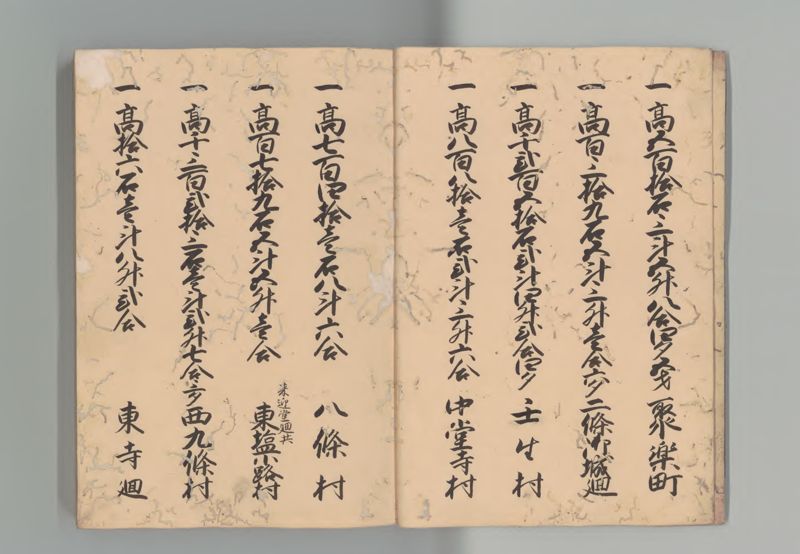 一高五百拾石三斗五升八合四夕五才 聚楽町
一高百三拾九石五斗三升壱合六夕 二條御城廻
一高千弐百五拾石弐斗四升弐合四夕 壬生村
一高八百八拾壱石弐斗三升六合 中堂寺村
一高七百四拾壱石八斗六合 八條村
一高百七拾九石五斗五升壱合 来迎堂廻共 東塩小路村
一高千三百弐拾三石壱斗弐升七合 西九條村
一高拾六石壱斗八升弐合 東寺廻